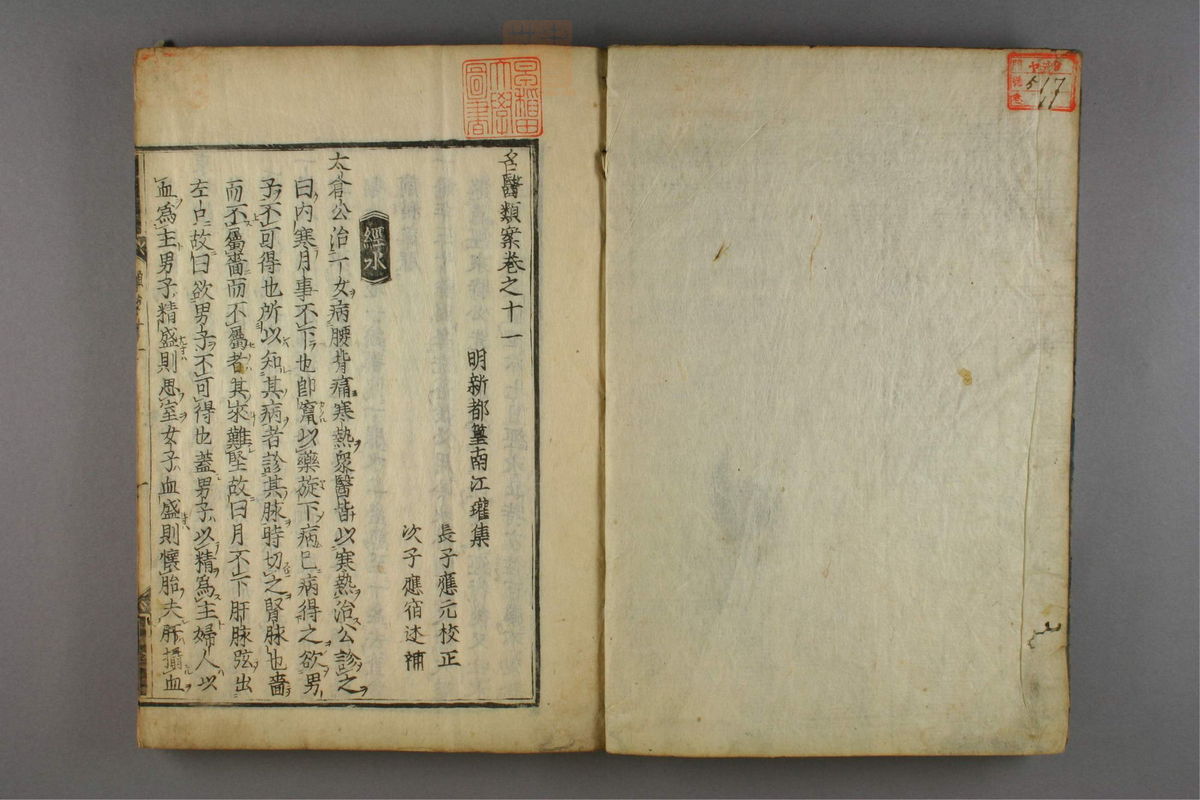 名醫類案卷之十一
明新都篁南江瓘集
長子應元校正
次子應宿述補
經水
太倉公治一女病腰背痛寒熱衆醫皆以寒熱治公診之
曰内寒月事不下也即竄以藥旋下病已病得之欲男
子不可得也所以知其病者診其脉時切之腎脉也嗇
而不屬嗇而不屬者其來難堅故曰月不下肝脉弦出
左口故曰欲男子不可得也蓋男子以精爲主婦人以
血爲主男子精盛則思室女子血盛則懷胎夫肝攝血
早稲田
大學
圖書
517
11